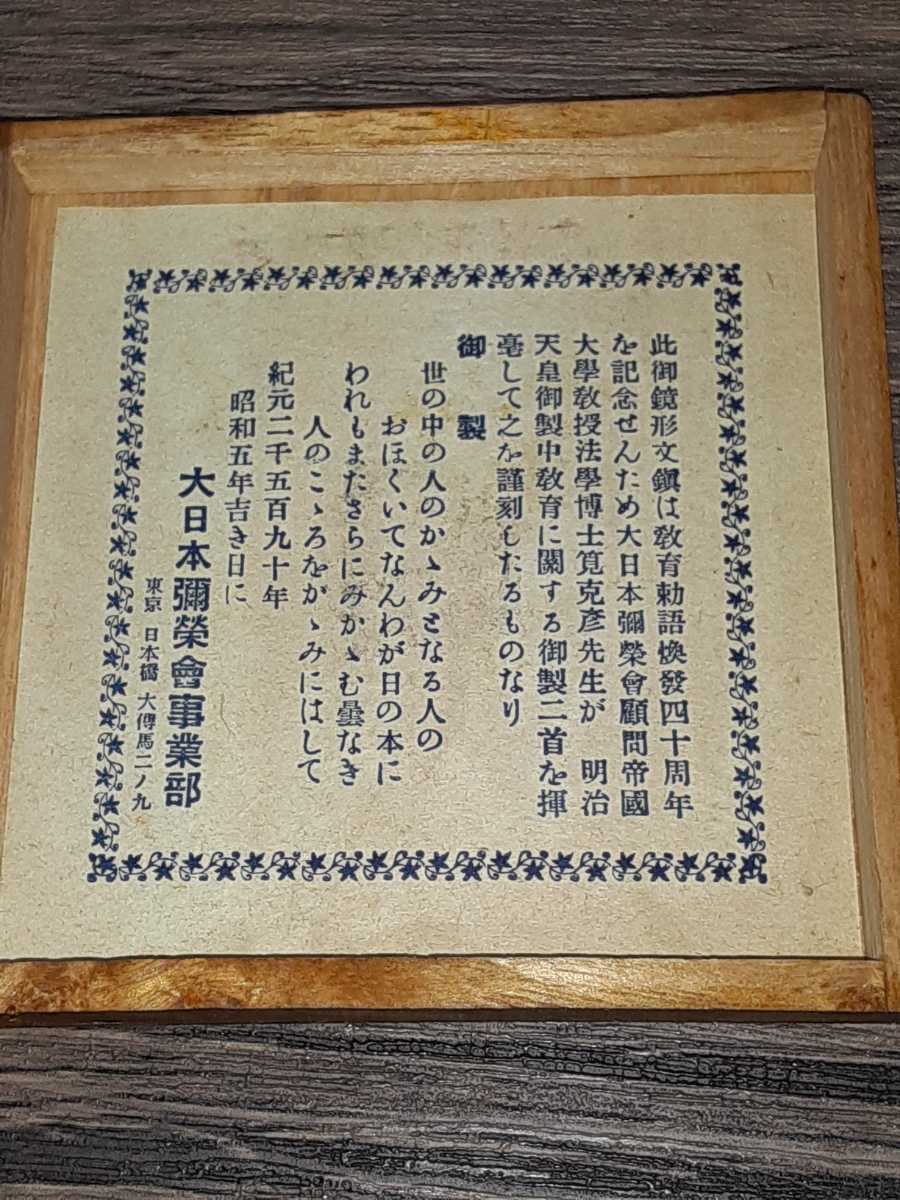 此御鏡形文鎭は敎育勅語煥發四十周年
を記念せんため大日本彌榮會顧問帝國
大學敎授法學博士筧克彥先生が　明治
天皇御製中敎育に關する御製二首を揮
毫して之を謹刻したるものなり
御製
世の中の人のかゞみとなる人の
おほくいでなんわが日の本に
われもまたさらにみがゝむ曇なき
人のこゝろをかゞみにはして
紀元二千五百九十年
昭和五年吉き日に
大日本彌榮會事業部
東京 日本橋 大傳馬二ノ九